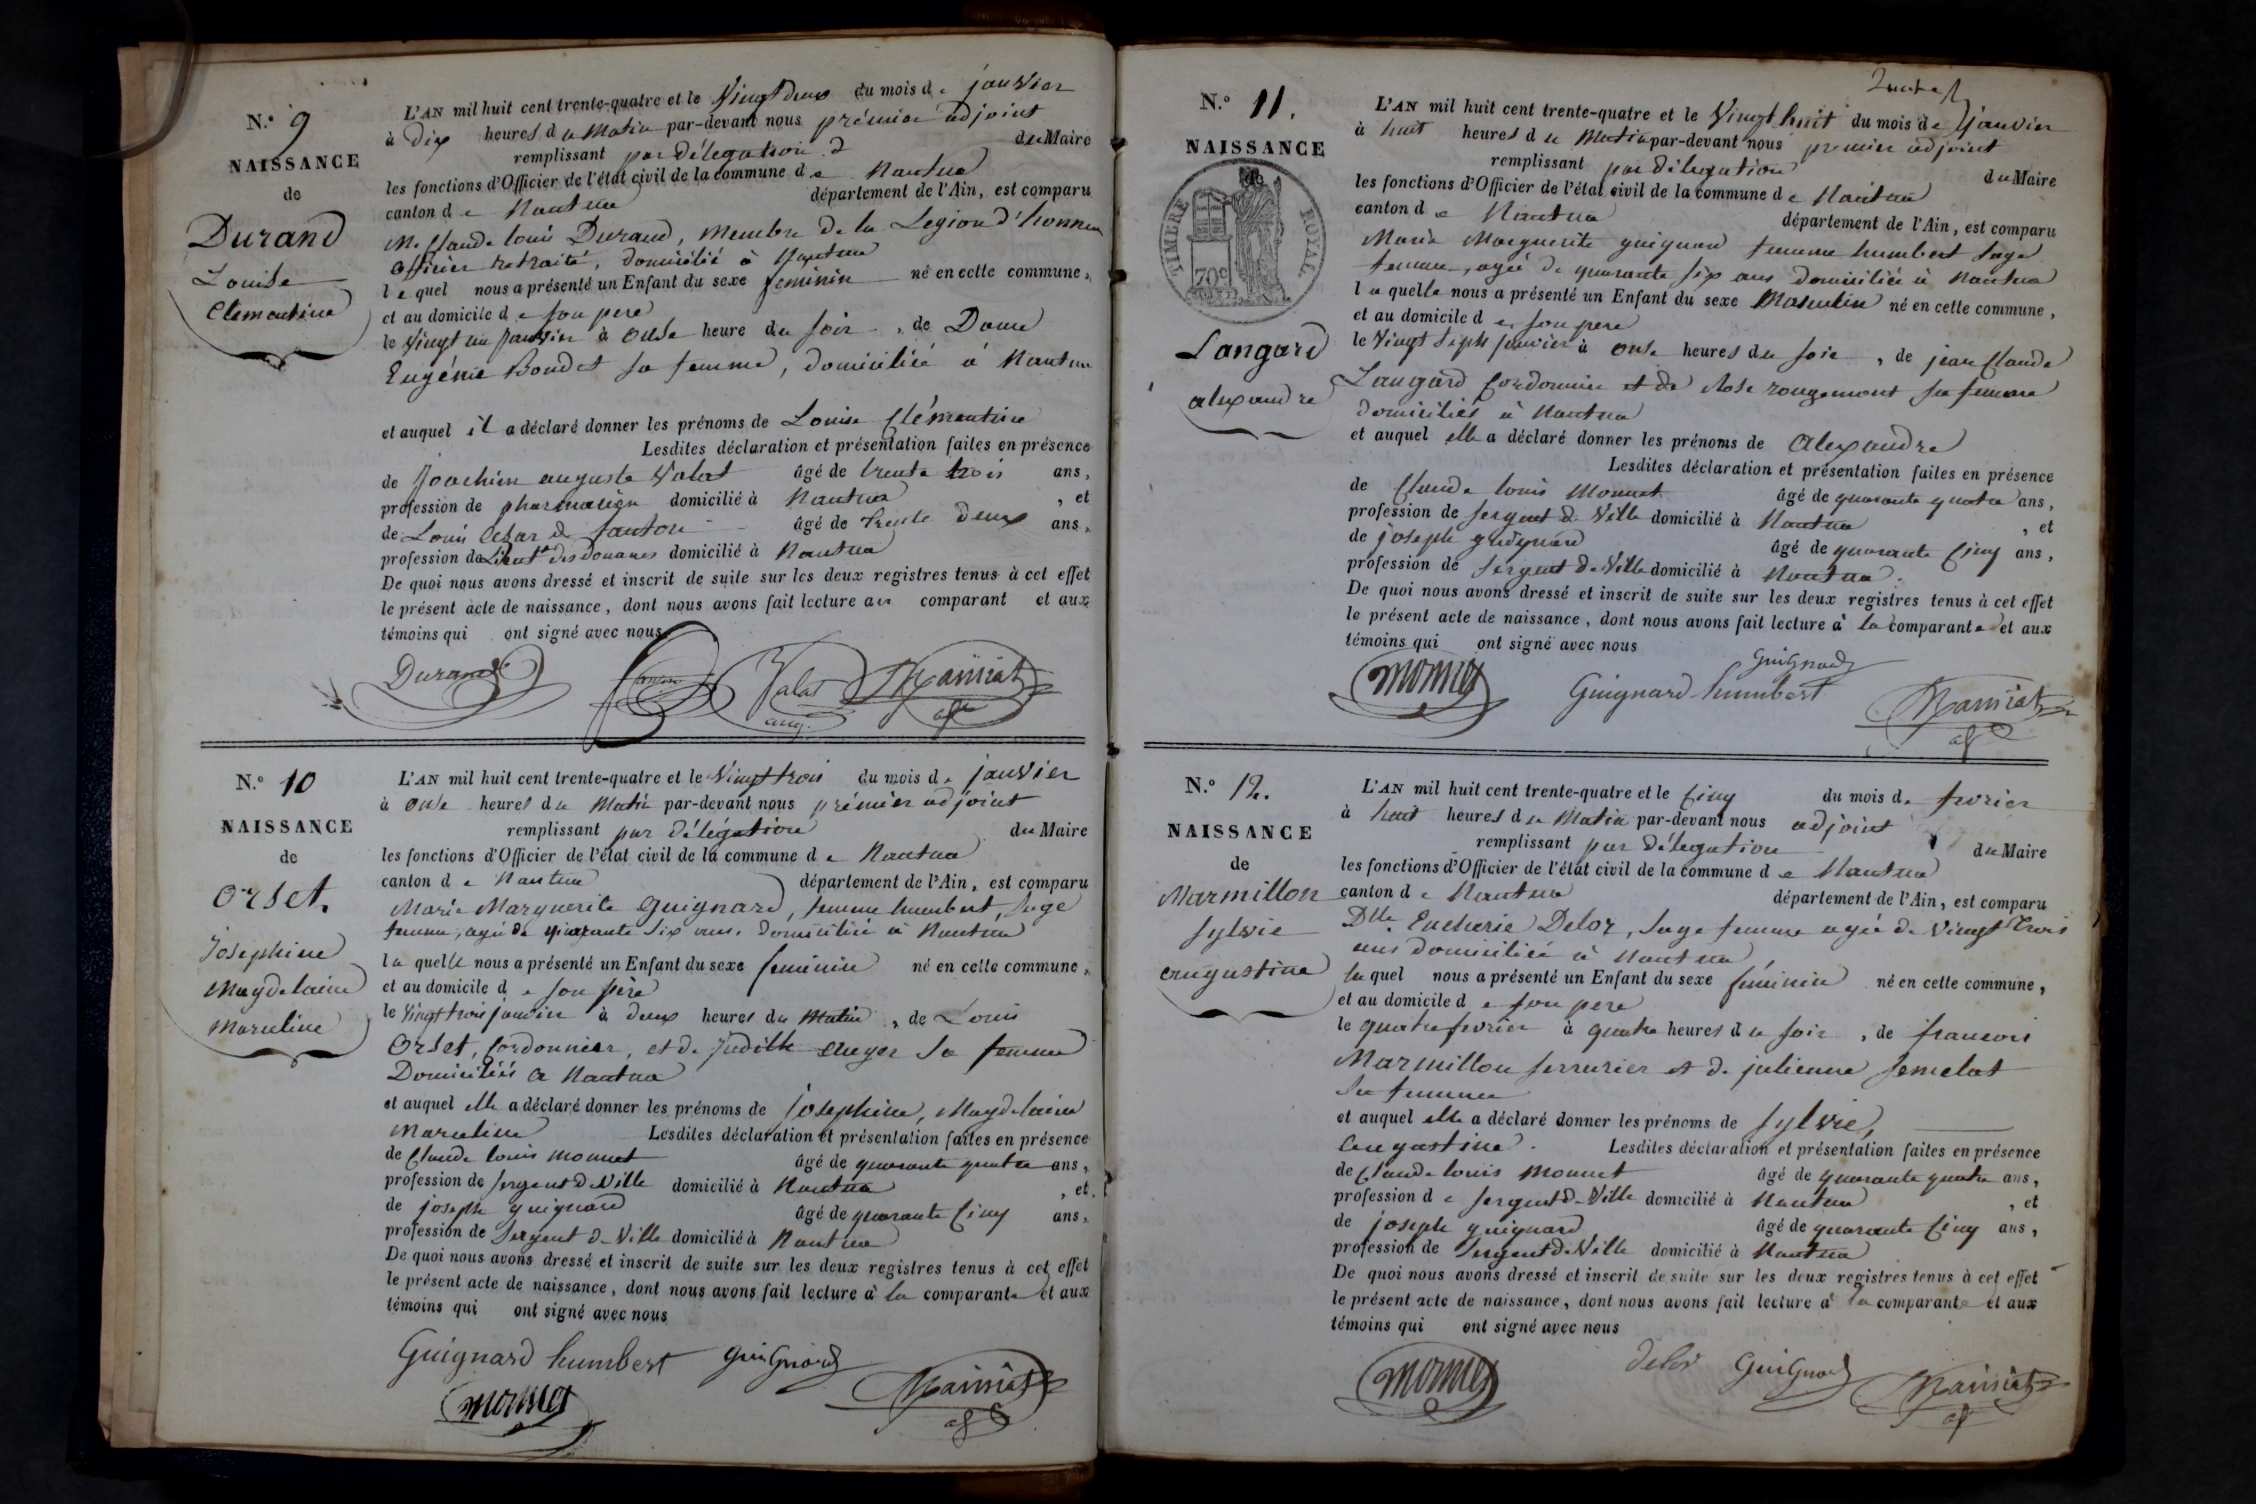 N.° 9
NAISSANCE
de
Durand
Louise
Clementine
L'AN mil huit cent trente-quatre et le Vingt deux du mois de janvier
à dix heures du Matin par-devant nous prémier adjoint
remplissant par délegation du Maire
les fonctions d'Officier de l'état civil de la commune de Nantua
canton de Nantua département de l'Ain, est comparu
Mr Claude louis Durand, Membre de la Legion d'honneur
officier retraité, domicilié à Nantua
lequel nous a présenté un Enfant du sexe feminin né en cette commune,
et au domicile de son pere
le Vingt un janvier à onse heure du soir, de Dame
Eugénie Boudet sa femme, domiciliée à Nantua
et auquel il a déclaré donner les prénoms de Louise Clémentine
Lesdites déclaration et présentation faites en présence
de Joachim auguste Valat âgé de trente trois ans,
profession de pharmacien domicilié à Nantua, et
de Louis Cesar de Santon âgé de trente deux ans,
profession de Lieutt des Douanes domicilié à Nantua
De quoi nous avons dressé et inscrit de suite sur les deux registres tenus à cet effet
le présent acte de naissance, dont nous avons fait lecture au comparant et aux
témoins qui ont signé avec nous
Durand Valat
aug.
N.° 10
NAISSANCE
de
Orset.
Josephine
Magdelaine
Marceline
L'AN mil huit cent trente-quatre et le Vingt trois du mois de janvier
à onse heures du Matin par-devant nous prémier adjoint
remplissant par délégation du Maire
les fonctions d'Officier de l'état civil de la commune de Nantua
canton de Nantua département de l'Ain, est comparu
Marie Marguerite Guignard, femme humbert, Sage
femme, agée de quarante six ans, domiciliée à Nantua
laquelle nous a présenté un Enfant du sexe feminin né en cette commune,
et au domicile de son père
le Vingt trois janvier à deux heures du Matin, de Louis
Orset, Cordonnier, et de Judith sa femme
Domiciliés a Nantua
et auquel elle a déclaré donner les prénoms de Josephine, Magdelaine
Marceline Lesdites déclaration et présentation faites en présence
de Claude louis Monnet âgé de quarante quatre ans,
profession de sergent de Ville domicilié à Nantua, et
de joseph guignard âgé de quarante Cinq ans,
profession de Sergent de Ville domicilié à Nantua
De quoi nous avons dressé et inscrit de suite sur les deux registres tenus à cet effet
le présent acte de naissance, dont nous avons fait lecture à la comparante et aux
témoins qui ont signé avec nous
Guignard humbert Guignard
monnet
N.° 11.
NAISSANCE
de
TIMBRE ROYAL
70c
Langard
alexandre
L'AN mil huit cent trente-quatre et le Vingt huit du mois de Janvier
à huit heures du Matin par-devant nous premier adjoint
remplissant par délegation du Maire
les fonctions d'Officier de l'état civil de la commune de Nantua
canton de Nantua département de l'Ain, est comparu
Marie Marguerite guignard femme humbert sage
femme, agée de quarante six ans domiciliée à Nantua
laquelle nous a présenté un Enfant du sexe Masculin né en cette commune,
et au domicile de son pere
le Vingt Sept Janvier à onse heures du soir, de jean Claude
Langard Cordonnier et de Rose rougemont sa femme
domiciliés à Nantua
et auquel elle a déclaré donner les prénoms de Alexandre
Lesdites déclaration et présentation faites en présence
de Claude louis Monnet âgé de quarante quatre ans,
profession de sergent de Ville domicilié à Nantua, et
de joseph guignard âgé de quarante Cinq ans,
profession de sergent de Ville domicilié à Nantua.
De quoi nous avons dressé et inscrit de suite sur les deux registres tenus à cet effet
le présent acte de naissance, dont nous avons fait lecture à la comparante et aux
témoins qui ont signé avec nous
monnet Guignard
Guignard humbert
N.° 12.
NAISSANCE
de
Marmillon
Sylvie
augustine
L'AN mil huit cent trente-quatre et le Cinq du mois de fevrier
à huit heures du Matin par-devant nous adjoint
remplissant par délegation du Maire
les fonctions d'Officier de l'état civil de la commune de Nantua
canton de Nantua département de l'Ain, est comparu
Dlle Eucherie Deloz, Sage femme agée de Vingt trois
ans domiciliée à Nantua
laquel nous a présenté un Enfant du sexe féminin né en cette commune,
et au domicile de son pere
le quatre fevrier à quatre heures du soir, de francois
Marmillon serrurier et de julienne Semelat
Sa femme
et auquel elle a déclaré donner les prénoms de Sylvie,
augustine. Lesdites déclaration et présentation faites en présence
de Claude louis Monnet âgé de quarante quatre ans,
profession de sergent de Ville domicilié à Nantua, et
de joseph guignard âgé de quarante Cinq ans,
profession de Sergent de Ville domicilié à Nantua
De quoi nous avons dressé et inscrit de suite sur les deux registres tenus à cet effet
le présent acte de naissance, dont nous avons fait lecture à la comparante et aux
témoins qui ont signé avec nous
monnet Guignard